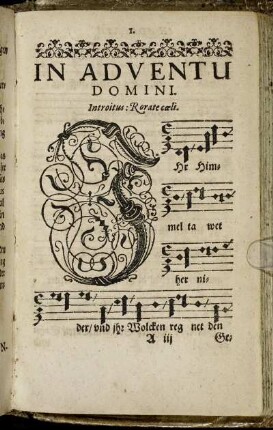 1.
IN ADVENTU
DOMINI.
Introitus: Rorate cœli.
Hr Him-
mel ta wet
her ni-
der/ vnd jhr Wolcken reg net den
A iij Ge-